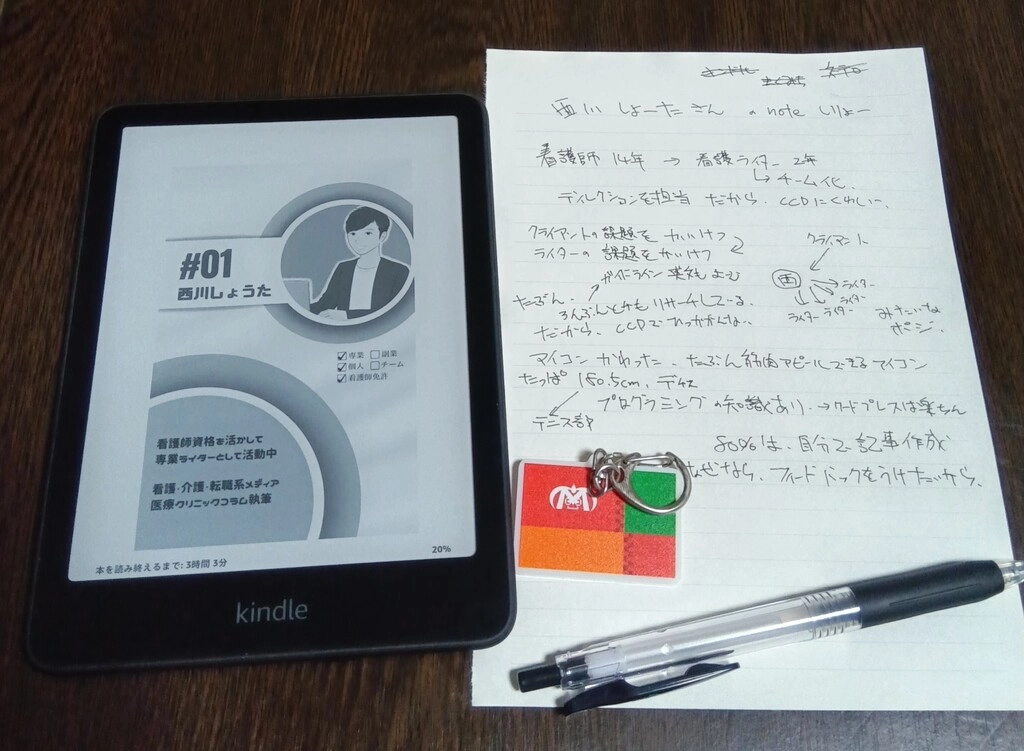 #01
西川しょうた
専業 副業
個人 チーム
看護師免許
看護師資格を活かして
専業ライターとして活動中
看護・介護・転職系メディア
医療クリニックコラム執筆
20%
本を読み終えるまで: 3時間 3分
kindle
西川 しょーた さん の note しりょー
看護師 14年 → 看護ライター 2年
↳ チーム化
ディレクションを担当 だから、CCDにくわしい、
クライアントの課題を かいけつ
ライターの課題をかいけつ
ガイドライン
クライアント
西
ライター
ライター
ライター ライター
みたいな
ポジ、
たぶん、ろんぶんとかも リサーチしている、
だから、CCDでひっかかんない
マイコン かわった、たぶん 筋肉アピールできるアイコン
たっぱ 180.5cm、デケェ
プログラミング の知識あり、→ワードプレスは楽ちん
テニス部
80%は、自分で記事作成
なぜなら、フィードバックをうけたいから、
M